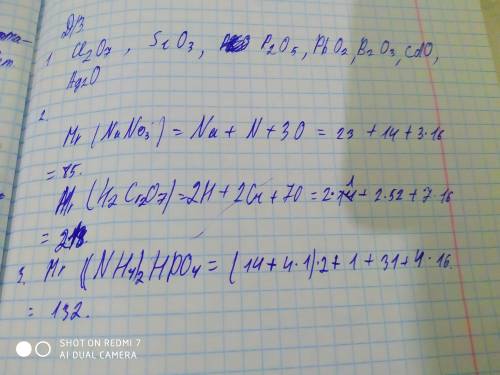 Д/З
1. Cl2O7, S2O3, P2O5, PbO2, B2O3, CdO,
Ag2O
2.
Mr (NaNO3) = Na + N + 3O = 23 + 14 + 3·16
= 85.
Mr (H2Cr2O7) = 2H + 2Cr + 7O = 2·1 + 2·52 + 7·16
= 218.
3. Mr ((NH4)2HPO4 = (14 + 4·1)·2 + 1 + 31 + 4·16.
= 132.
SHOT ON REDMI 7
AI DUAL CAMERA